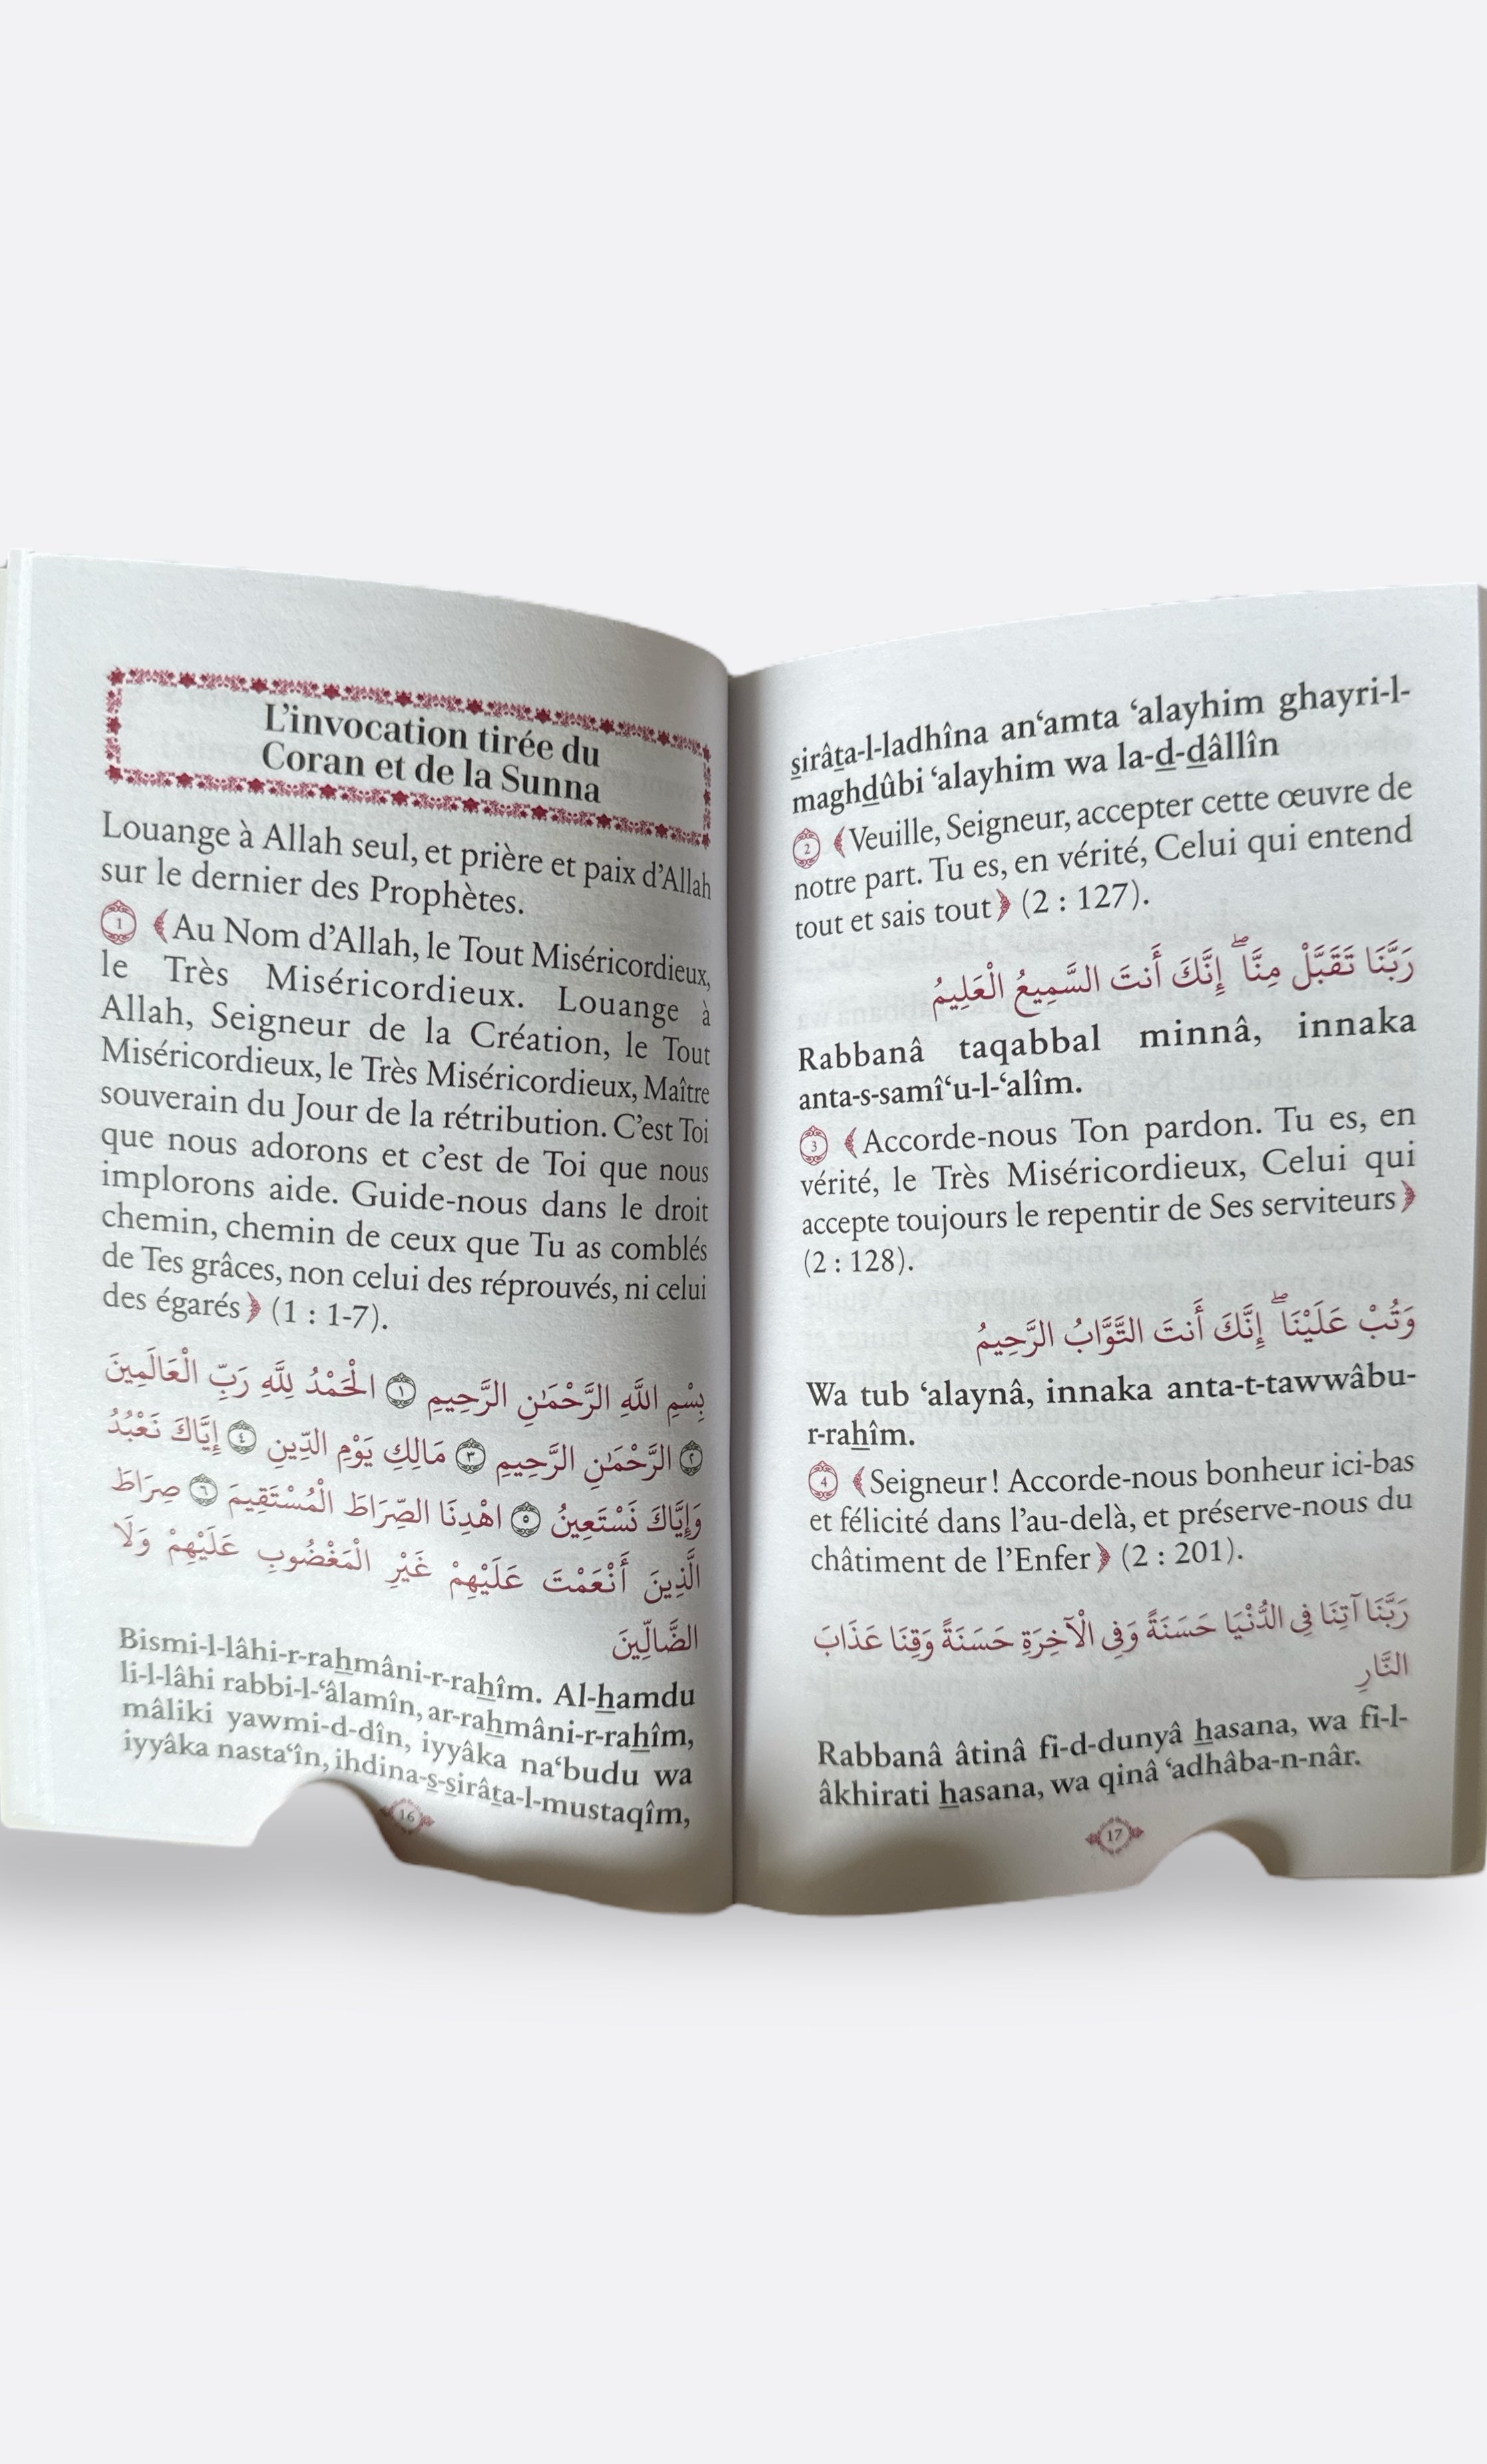 L'invocation tirée du
Coran et de la Sunna
Louange à Allah seul, et prière et paix d'Allah
sur le dernier des Prophètes.
1 ﴾Au Nom d'Allah, le Tout Miséricordieux,
le Très Miséricordieux. Louange à
Allah, Seigneur de la Création, le Tout
Miséricordieux, le Très Miséricordieux, Maître
souverain du Jour de la rétribution. C'est Toi
que nous adorons et c'est de Toi que nous
implorons aide. Guide-nous dans le droit
chemin, chemin de ceux que Tu as comblés
de Tes grâces, non celui des réprouvés, ni celui
des égarés﴿ (1 : 1-7).
بِسْمِ اللَّهِ الرَّحْمَٰنِ الرَّحِيمِ ١ الْحَمْدُ لِلَّهِ رَبِّ الْعَالَمِينَ
٢ الرَّحْمَٰنِ الرَّحِيمِ ٣ مَالِكِ يَوْمِ الدِّينِ ٤ إِيَّاكَ نَعْبُدُ
وَإِيَّاكَ نَسْتَعِينُ ٥ اهْدِنَا الصِّرَاطَ الْمُسْتَقِيمَ ٦ صِرَاطَ
الَّذِينَ أَنْعَمْتَ عَلَيْهِمْ غَيْرِ الْمَغْضُوبِ عَلَيْهِمْ وَلَا
الضَّالِّينَ
Bismi-l-lâhi-r-rahmâni-r-rahîm. Al-hamdu
li-l-lâhi rabbi-l-‘âlamîn, ar-rahmâni-r-rahîm,
mâliki yawmi-d-dîn, iyyâka na‘budu wa
iyyâka nasta‘în, ihdina-s-sirâta-l-mustaqîm,
16
sirâta-l-ladhîna an‘amta ‘alayhim ghayri-l-
maghdûbi ‘alayhim wa la-d-dâllîn
2 ﴾Veuille, Seigneur, accepter cette œuvre de
notre part. Tu es, en vérité, Celui qui entend
tout et sais tout﴿ (2 : 127).
رَبَّنَا تَقَبَّلْ مِنَّا ۖ إِنَّكَ أَنتَ السَّمِيعُ الْعَلِيمُ
Rabbanâ taqabbal minnâ, innaka
anta-s-samî‘u-l-‘alîm.
3 ﴾Accorde-nous Ton pardon. Tu es, en
vérité, le Très Miséricordieux, Celui qui
accepte toujours le repentir de Ses serviteurs﴿
(2 : 128).
وَتُبْ عَلَيْنَا ۖ إِنَّكَ أَنتَ التَّوَّابُ الرَّحِيمُ
Wa tub ‘alaynâ, innaka anta-t-tawwâbu-
r-rahîm.
4 ﴾Seigneur ! Accorde-nous bonheur ici-bas
et félicité dans l'au-delà, et préserve-nous du
châtiment de l'Enfer﴿ (2 : 201).
رَبَّنَا آتِنَا فِي الدُّنْيَا حَسَنَةً وَفِي الْآخِرَةِ حَسَنَةً وَقِنَا عَذَابَ
النَّارِ
Rabbanâ âtinâ fi-d-dunyâ hasana, wa fi-l-
âkhirati hasana, wa qinâ ‘adhâba-n-nâr.
17